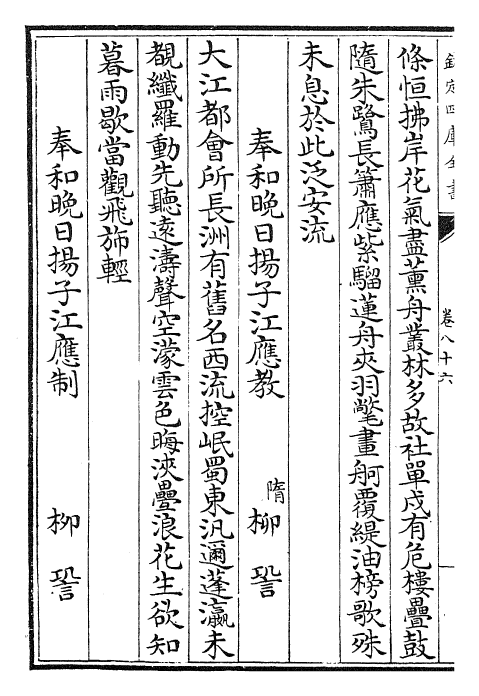 欽定四庫全書
卷八十六
條恒拂岸花氣盡薫舟叢林多故社單戍有危樓疊鼓
隨朱鷺長簫應紫騮蓮舟夾羽氅畫舸覆緹油榜歌殊
未息於此泛安流
奉和晚日揚子江應教 隋 柳䛒
大江都會所長洲有舊名西流控岷蜀東汎邇蓬瀛未
覩纖羅動先聽遠濤聲空濛雲色晦浹疊浪花生欲知
暮雨歇當觀飛斾輕
奉和晚日揚子江應制 柳䛒